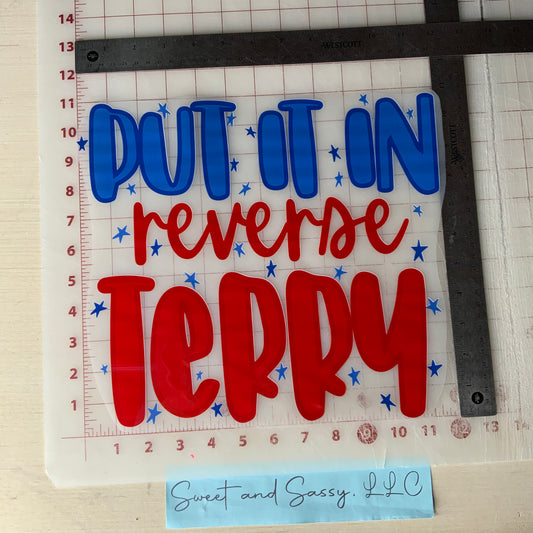 14
13
WESTCOTT
12
11
10
PUT IT IN
9
8
WESTCOTT
7
reverse
6
5
4
TeRRY
3
2
1
1 2 3 4 5 6 7 8 9 10 11 12 13
Sweet and Sassy, LLC